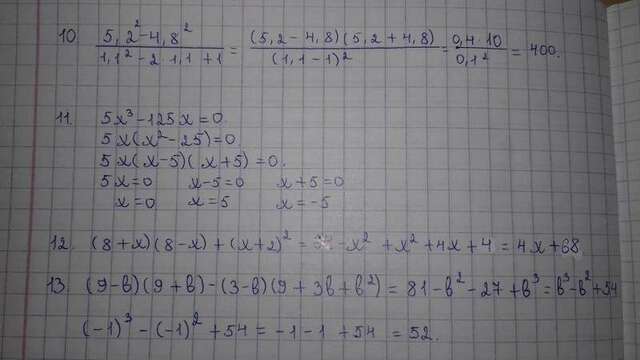 10. (5,2² - 4,8²)/(1,1² - 2·1,1 + 1) = ((5,2 - 4,8)(5,2 + 4,8))/((1,1 - 1)²) = (0,4·10)/(0,1²) = 400.
11. 5x³ - 125x = 0.
5x(x² - 25) = 0
5x(x - 5)(x + 5) = 0.
5x = 0 x - 5 = 0 x + 5 = 0
x = 0 x = 5 x = -5
12. (8 + x)(8 - x) + (x + 2)² = - x² + x² + 4x + 4 = 4x + 68
13. (9 - b)(9 + b) - (3 - b)(9 + 3b + b²) = 81 - b² - 27 + b³ = b³ - b² + 54
(-1)³ - (-1)² + 54 = -1 - 1 + 54 = 52.